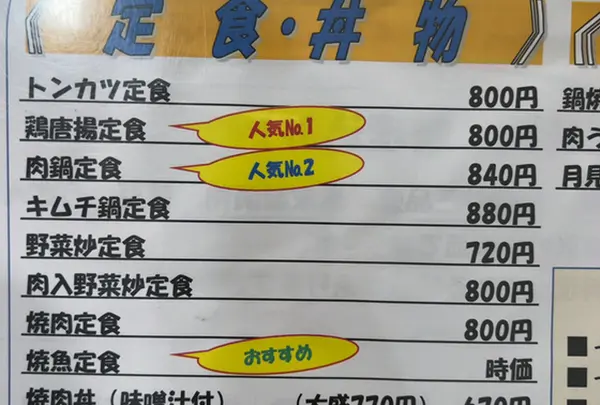 定食・丼物
トンカツ定食 800円
鶏唐揚定食 人気No.1 800円
肉鍋定食 人気No.2 840円
キムチ鍋定食 880円
野菜炒定食 720円
肉入野菜炒定食 800円
焼肉定食 800円
焼魚定食 おすすめ 時価
焼肉丼（味噌汁付） （大盛770円） 670円
鍋焼
肉う
月見